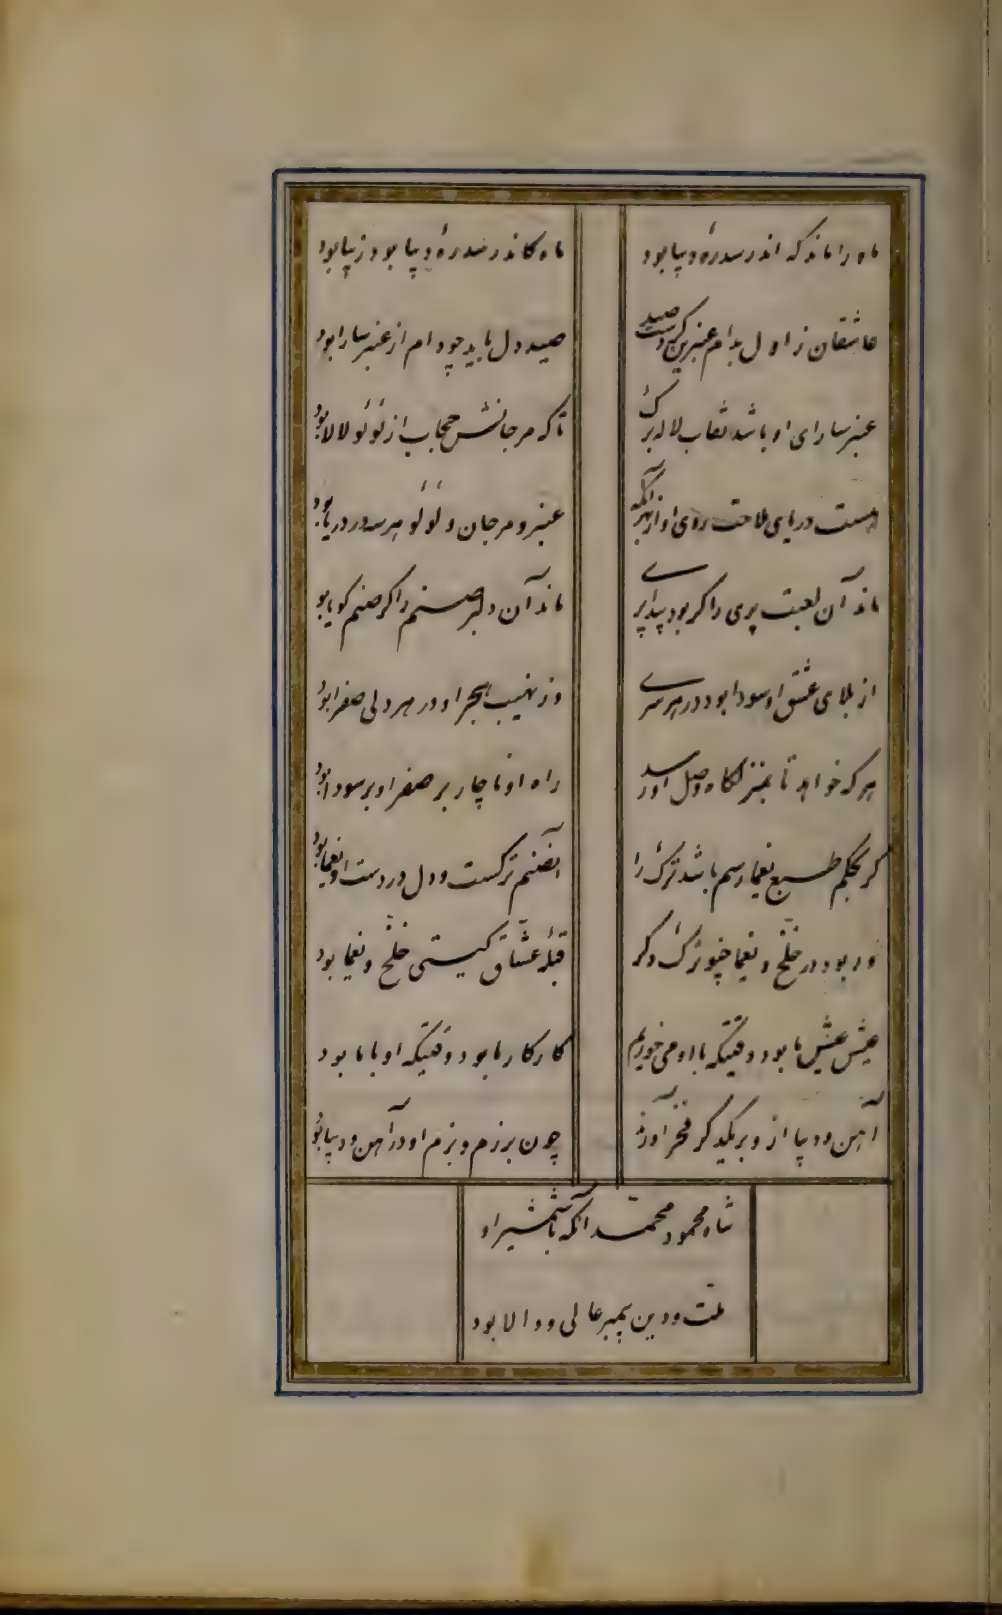 ماه را ماند که اندر سدرهٔ دیبا بود ماه کاندر سدرهٔ دیبا بود زیبا بود
عاشقان را دل بدام عنبرین کردست صید صید دل باید چو دام از عنبر سارا بود
عنبر سارای او باشد نقاب لاله برک تا که مرجانش حجاب از لؤلؤ لالا بود
هست دریای ملاحت روی او از بهر آنکه عنبر و مرجان و لؤلؤ هر سه در دریا بود
ماند آن لعبت پری را کر بود پیدا پری ماند آن دلبر صنم را کر صنم کویا بود
از بلای عشق او سودا بود در هر سری وز نهیب هجر او در هر دلی صفرا بود
هر که خواهد تا بمنزلکاه وصل او رسد راه او ناچار بر صفرا و بر سودا بود
کر بحکم طبع یغما رسم باشد ترک را آن صنم ترکست و دل در دست او یغما بود
ور بود در خلخ و یغما چنو ترک دکر قبلهٔ عشاق کیتی خلخ و یغما بود
عیش عیش ما بود وقتیکه با او می خوریم کار کار ما بود وقتیکه او با ما بود
آهن و دیبا از و بر یکدکر فخر آورند چون برزم و بزم او در آهن و دیبا بود
شاه محمود محمد آنکه با شمشیر او
ملت و دین پیمبر عالی و والا بود